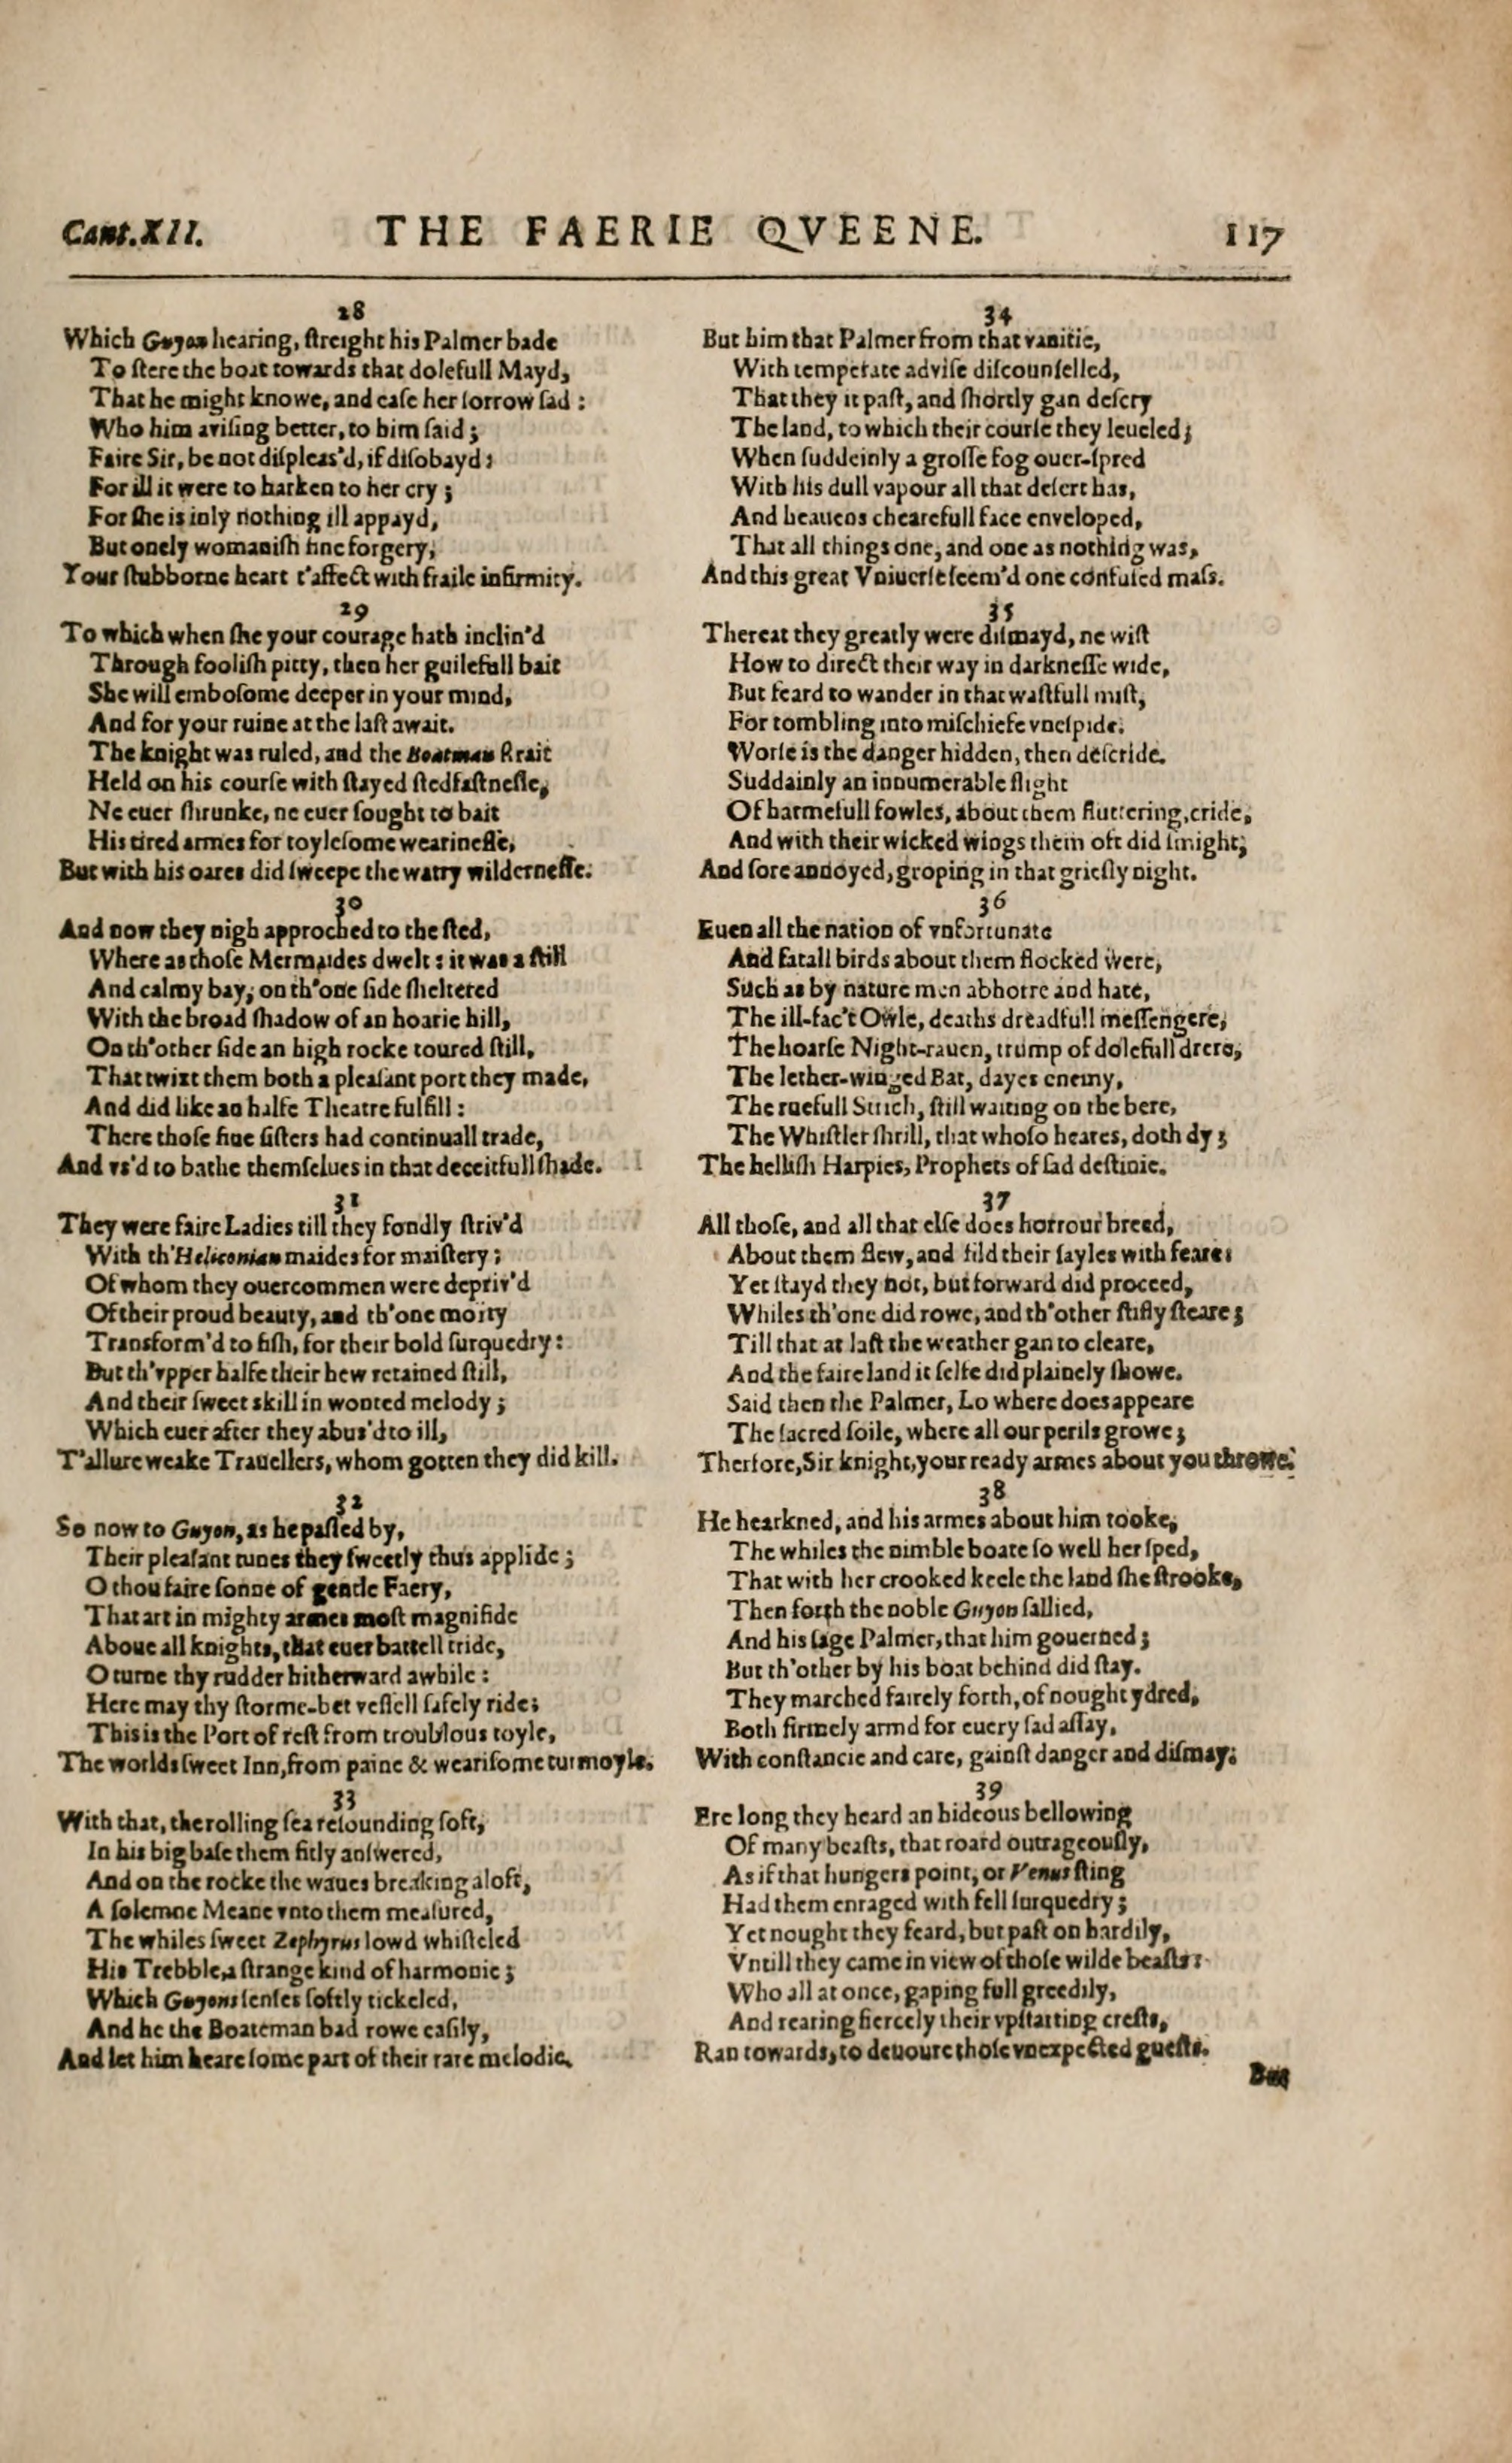 Cant. XII. THE FAERIE QVEENE. 117
28
Which Guyon hearing, ſtreight his Palmer bade
To ſtere the boat towards that dolefull Mayd,
That he might knowe, and eaſe her ſorrow ſad:
Who him aviſing better, to him ſaid;
Faire Sir, be not diſpleas'd, if diſobayd:
For ill it were to harken to her cry;
For ſhe is inly nothing ill appayd,
But onely womaniſh fine forgery,
Your ſtubborne heart t'affect with fraile infirmity.
29
To which when ſhe your courage hath inclin'd
Through fooliſh pitty, then her guilefull bait
She will emboſome deeper in your mind,
And for your ruine at the laſt await.
The knight was ruled, and the Boatman ſtrait
Held on his courſe with ſtayed ſtedfaſtneſſe,
Ne euer ſhrunke, ne euer ſought to bait
His tired armes for toyleſome wearineſſe,
But with his oares did ſweepe the watry wilderneſſe.
30
And now they nigh approched to the ſted,
Where as thoſe Mermaides dwelt: it was a ſtill
And calmy bay, on th'one ſide ſheltered
With the broad ſhadow of an hoarie hill,
On th'other ſide an high rocke toured ſtill,
That twixt them both a pleaſant port they made,
And did like an halfe Theatre fulfill:
There thoſe fiue ſiſters had continuall trade,
And vs'd to bathe themſelues in that deceitfull ſhade.
31
They were faire Ladies till they fondly ſtriv'd
With th'Heliconian maides for maiſtery;
Of whom they ouercommen were depriv'd
Of their proud beauty, and th'one moity
Transform'd to fiſh, for their bold ſurquedry:
But th'vpper halfe their hew retained ſtill,
And their ſweet skill in wonted melody;
Which euer after they abus'd to ill,
T'allure weake Trauellers, whom gotten they did kill.
32
So now to Guyon, as he paſſed by,
Their pleaſant tunes they ſweetly thus applide;
O thou faire ſonne of gentle Faery,
That art in mighty armes moſt magnifide
Aboue all knights, that euer battell tride,
O turne thy rudder hitherward awhile:
Here may thy ſtorme-bet veſſell ſafely ride;
This is the Port of reſt from troublous toyle,
The worlds ſweet Inn, from paine & weariſome turmoyle.
33
With that, the rolling ſea reſounding ſoft,
In his big baſe them fitly anſwered,
And on the rocke the waues breaking aloft,
A ſolemne Meane vnto them meaſured,
The whiles ſweet Zephyrus lowd whiſteled
His Trebble, a ſtrange kind of harmonie;
Which Guyons ſenſes ſoftly tickeled,
And he the Boateman bad rowe eaſily,
And let him heare ſome part of their rare melodie.
34
But him that Palmer from that vanitie,
With temperate adviſe diſcounſelled,
That they it paſt, and ſhortly gan deſcry
The land, to which their courſe they leueled;
When ſuddeinly a groſſe fog ouer-ſpred
With his dull vapour all that deſert has,
And heauens chearefull face enveloped,
That all things one, and one as nothing was,
And this great Vniuerſe ſeem'd one confuſed maſs.
35
Thereat they greatly were diſmayd, ne wiſt
How to direct their way in darkneſſe wide,
But feard to wander in that waſtfull miſt,
For tombling into miſchiefe vneſpide.
Worſe is the danger hidden, then deſcride.
Suddainly an innumerable flight
Of harmefull fowles, about them fluttering, cride,
And with their wicked wings them oft did ſmight,
And ſore annoyed, groping in that grieſly night.
36
Euen all the nation of vnfortunate
And fatall birds about them flocked were,
Such as by nature men abhorre and hate,
The ill-fac't Owle, deaths dreadfull meſſengere,
The hoarſe Night-rauen, trump of dolefull drere,
The lether-winged Bat, dayes enemy,
The ruefull Strich, ſtill waiting on the bere,
The Whiſtler ſhrill, that whoſo heares, doth dy;
The helliſh Harpies, Prophets of ſad deſtinie.
37
All thoſe, and all that elſe does horrour breed,
About them flew, and fild their ſayles with feare:
Yet ſtayd they not, but forward did proceed,
Whiles th'one did rowe, and th'other ſtifly ſteare;
Till that at laſt the weather gan to cleare,
And the faire land it ſelfe did plainely ſhowe.
Said then the Palmer, Lo where does appeare
The ſacred ſoile, where all our perils growe;
Therfore, Sir knight, your ready armes about you throwe.
38
He hearkned, and his armes about him tooke,
The whiles the nimble boate ſo well her ſped,
That with her crooked keele the land ſhe ſtrooke,
Then forth the noble Guyon ſallied,
And his ſage Palmer, that him gouerned;
But th'other by his boat behind did ſtay.
They marched fairely forth, of nought ydred,
Both firmely armd for euery ſad aſſay,
With conſtancie and care, gainſt danger and diſmay.
39
Ere long they heard an hideous bellowing
Of many beaſts, that roard outrageouſly,
As if that hungers point, or Venus ſting
Had them enraged with fell ſurquedry;
Yet nought they feard, but paſt on hardily,
Vntill they came in view of thoſe wilde beaſts:
Who all at once, gaping full greedily,
And rearing fiercely their vpſtarting creſts,
Ran towards, to deuoure thoſe vnexpected gueſts.
But